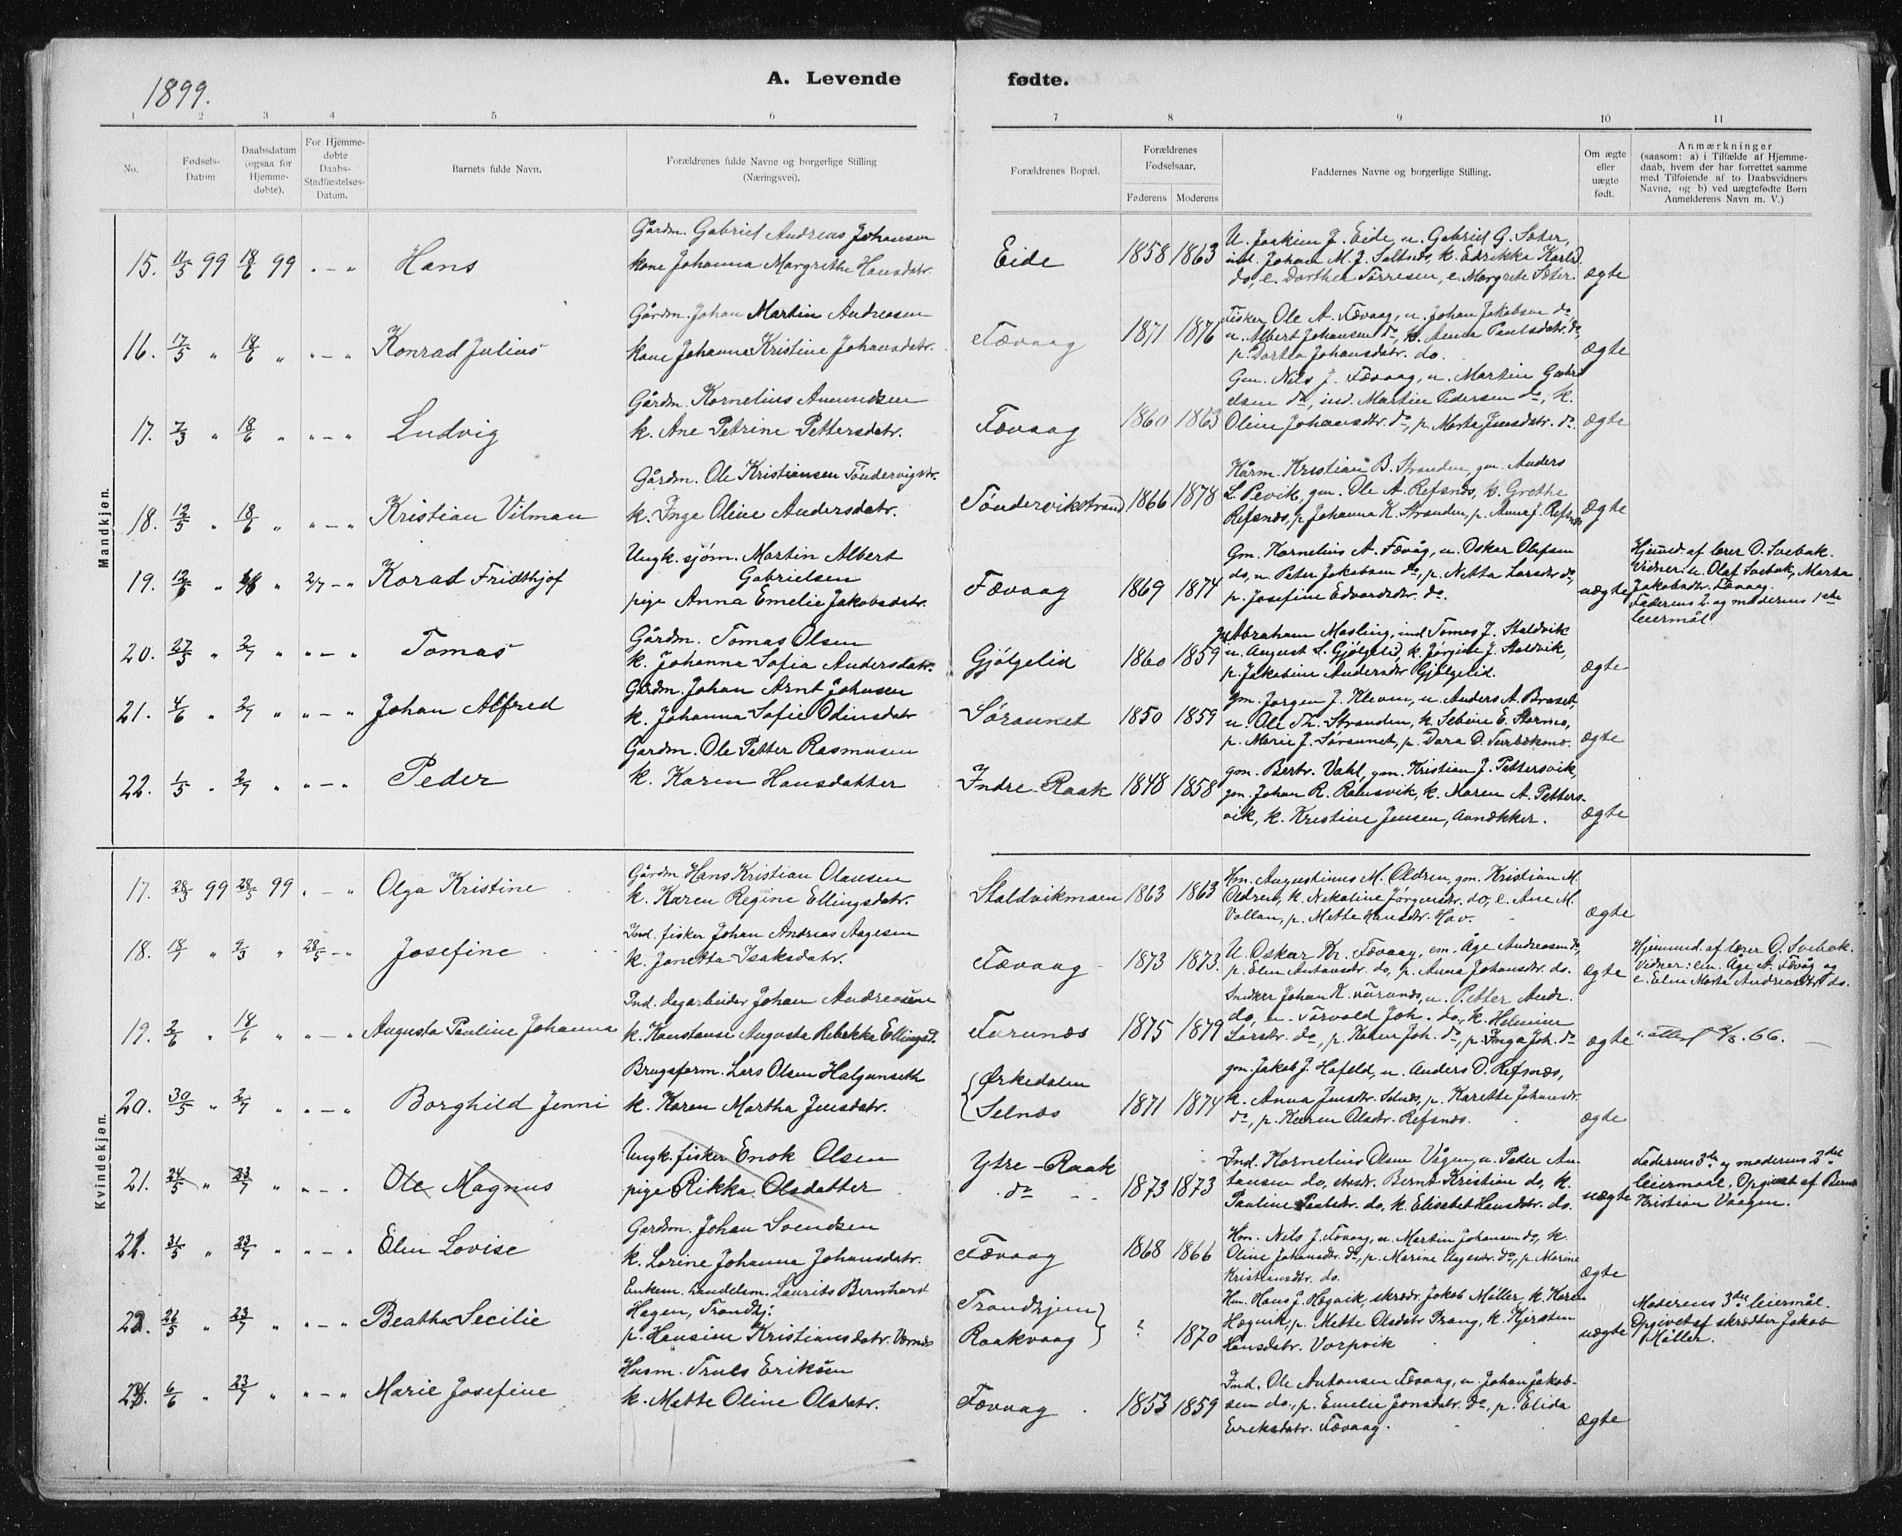 1899.
A. Levende fødte.
1 2 3 4 5 6 7 8 9 10 11
No.
Fødsels-Datum
Daabsdatum (ogsaa for Hjemme-døbte).
For Hjemme-døbte Daabs-Stadfæstelses-Datum.
Barnets fulde Navn.
Forældrenes fulde Navne og borgerlige Stilling (Næringsvei).
Forældrenes Bopæl.
Forældrenes Fødselsaar.
Faderens Moderens
Faddernes Navne og borgerlige Stilling.
Om ægte eller uægte født.
Anmærkninger
(saasom: a) i Tilfælde af Hjemme-
daab, hvem der har forrettet samme
med Tilføiende af to Daabsvidners
Navne, og b) ved uægtefødte Børn
Anmelderens Navn m. V.)
Mandkjøn.
Gårdm. Gabriel Andreas Johansen
15. 11/5 99 18/6 99 " - " Hans kone Johanna Margrethe Hansdatr. Eide 1858 1863
U. Joakim J. Eide, u. Gabriel G. Sæter,
ind. Johan M. J. Selnæs, k. Edrikka Karlsd.
do, e. Dorthea Tørresen, e. Margrete Sæter. ægte
Gårdm. Johan Martin Andreasen
16. 17/5 " 18/6 " " - " Konrad Julius kone Johanna Kristine Johansdatr. Fævaag 1871 1876
Fisker Ole A. Fævaag, u. Johan Jakobsen do
u. Albert Johansen do, k. Anna Paulsdatr. do,
p. Dortea Johansdatr. do. ægte
Gårdm. Kornelius Amundsen
17. 7/3 " 18/6 " " - " Ludvig k. Ane Petrine Pettersdatr. Fævaag 1860 1863
Gm. Nils J. Fævaag, u. Martin Gabri-
elsen do, ind. Martin Pedersen do, k.
Oline Johansdtr. do, p. Marta Jensdatr. do. ægte
Gårdm. Ole Kristiansen Tøndervigstr.
18. 12/5 " 18/6 " " - " Kristian Vilman k. Inga Oline Andersdatr. Tøndervikstrand 1866 1878
Kårm. Kristian B. Stranden, gm. Anders
L. Pevik, gm. Ole A. Refsnæs, k. Grethe
Refsnæs, p. Johanna K. Stranden, p. Anna J. Refsnæs ægte
Ungk. sjøm. Martin Albert
Gabrielsen
19. 12/5 " " 2/7 - " Korad Fridthjof pige Anna Emelie Jakobsdatr. Fævaag 1869 1874
Gm. Kornelius A. Fævåg, u. Oskar Olafsen
do, u. Peter Jakobsen do, p. Netta Larsdtr do,
p. Josefine Edvardsdtr. do. uægte
Hjemmed. af lærer O. Svebak.
Vidner: u. Olaf Svebak, Marta
Jakobsdtr. Fævaag.
Faderens 2. og moderens 1ste
leiermål
Gårdm. Tomas Olsen
20. 27/5 " 2/7 " " - " Tomas k. Johanna Sofia Andersdatr. Gjølgelid 1860 1859
Abraham Masling, ind. Tomas J. Staldvik
u. August L. Gjølgelid, k. Jørgine J. Staldvik,
p. Jakobine Andersdtr Gjølgelid. ægte
Gårdm. Johan Arnt Johnsen
21. 4/6 " 2/7 " " - " Johan Alfred k. Johanna Sofie Odinsdatr Søraunet 1850 1859
gm. Jørgen J. Kleven, u. Anders A. Braset,
u. Ole Th. Stranden, k. Sebine E. Stormo,
p. Marie J. Søraunet, p. Dora D. Turbekmo. ægte
Gårdm. Ole Petter Rasmusen
22. 1/5 " 2/7 " " - " Peder k. Karen Hansdatter Indre-Raak 1848 1858
gm. Bertr. Vahl, gm. Kristian J. Pettersvik,
gm. Johan R. Ramsvik, k. Maren A. Petters-
vik, k. Kristine Jensen, Aunækker. ægte
Kvindekjøn.
Gårdm Hans Kristian Olausen
17. 28/3 99 28/5 99 " - " Olga Kristine k. Karen Regine Ellingsdatr. Staldvikmoen 1863 1863
Hm. Augustinus M. Oldren, gm. Kristian M.
Oldren, k. Nekoline Jørgensdtr. do, e. Ane M.
Vollan, p. Mette Hansdtr. Hov. ægte
Ind. fisker Johan Andreas Aagesen
18. 18/1 " 2/3 " 28/5 - " Josefine k. Janetta Isaksdatr. Fævaag 1873 1873.
U. Oskar Kr. Fævaag, em. Åge Andreasen do,
p. Elen Antonsdtr. do, p. Anna Johansdtr. do. ægte
Hjemmd. af lærer O. Svebak.
Vidner: em. Åge A. Fævåg og
e. Elen Marta Andreasdtr. do.
Ind. dagarbeider Johan Andreasen
19. 2/6 " 18/6 " " - " Augusta Pauline Johanna k. Konstanse Augusta Rebekka Ellingsd. Furunæs 1875 1879
Snikker Johan K. Furunæs, u. Petter Andr.
do, u. Torvald Joh. do, k. Helmine
Larsdtr. do, p. Karen Joh. do, p. Inga Joh. do ægte
attest 66.
Brugsform. Lars Olsen Halgunseth
20. 30/5 " 2/7 " " - " Borghild Jenni k. Karen Martha Jensdatr. Ørkedalen Selnæs 1871 1874
gm. Jakob J. Hafeld, u. Anders D. Refsnæs,
k. Anna Jensdtr. Selnæs, p. Karette Johansdtr.
do, p. Karen Olsdtr. Refsnæs. ægte
Ungk. fisker Enok Olsen
21. 24/5 " 23/7 " " - " Ole Magnus pige Rikka Olsdatter Ytre-Raak do 1873 1873
Ind. Kornelius Olsen Vågen, u. Peder An-
tonsen do, Bernt Kristian do, k.
Pauline Paulsdtr. do, k. Elisabet Hansdtr. do. uægte
Faderens 3die og moderens 2det
leiermaal. Opgivet af Bernt
Kristian Vaagen.
Gardm. Johan Svendsen
22. 31/5 " 23/7 " " - " Elen Lovise k. Lorine Johanna Johansdatr. Fævaag 1868 1866
Hm. Nils J. Fævaag, u. Martin Johansen do, k.
Oline Johansdtr. do, p. Marine Aagesdtr. do, p. Marine
Kristiansdtr. do. ægte
Enkem. handelsm. Laurits Bernhard
Hagen, Trondhj.
22. 26/5 " 23/7 " " - " Beatha Secilie p. Hansine Kristiansdatr. Vornæs Trondhjem Raakvaag ? 1870
Hm. Hans J. Høgvik, skrædr. Jakob Møller, k. Karen
Høgvik, p. Mette Olsdatr Prang, k. Kjersten
Hansdatr. Vorpvik uægte
Moderens 3die leiermål.
Opgivet af skrædter Jakob
Møller.
Husm. Truls Eriksen
23. 6/6 " 23/7 " " - " Marie Josefine k. Mette Oline Olsdatr. Fævaag 1853 1859
Ind. Ole Antonsen Fævaag, u. Johan Jakob-
sen do, p. Emelie Jonsdatr. do, p. Elida
Eriksdatr. Fævaag. ægte